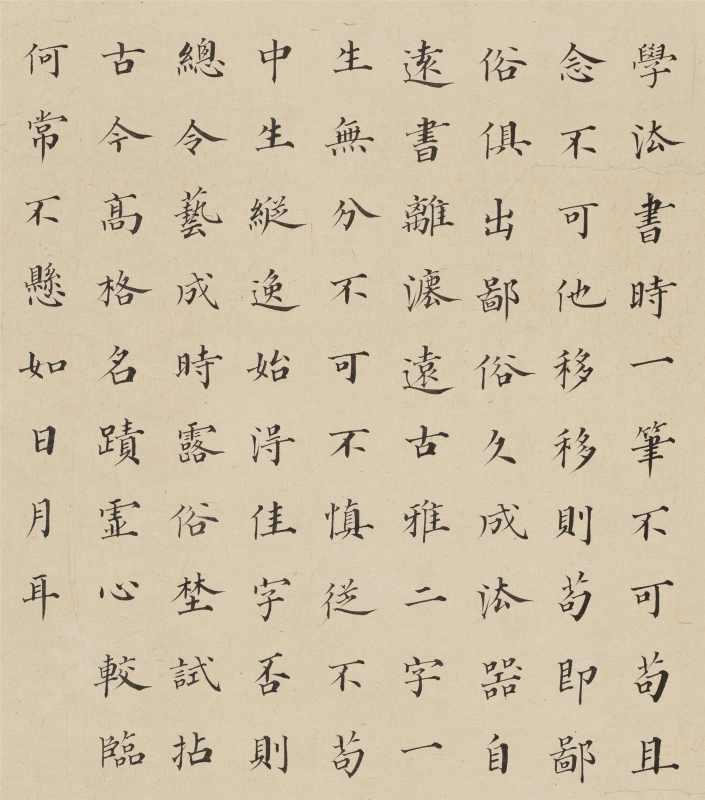 學法書時一筆不可苟且
念不可他移移則苟即鄙
俗俱出鄙俗久成法器自
遠書離灋遠古雅二字一
生無分不可不慎從不苟
中生縱逸始淂佳字否則
總令藝成時露俗埜試拈
古今高格名蹟虛心較臨
何常不懸如日月耳